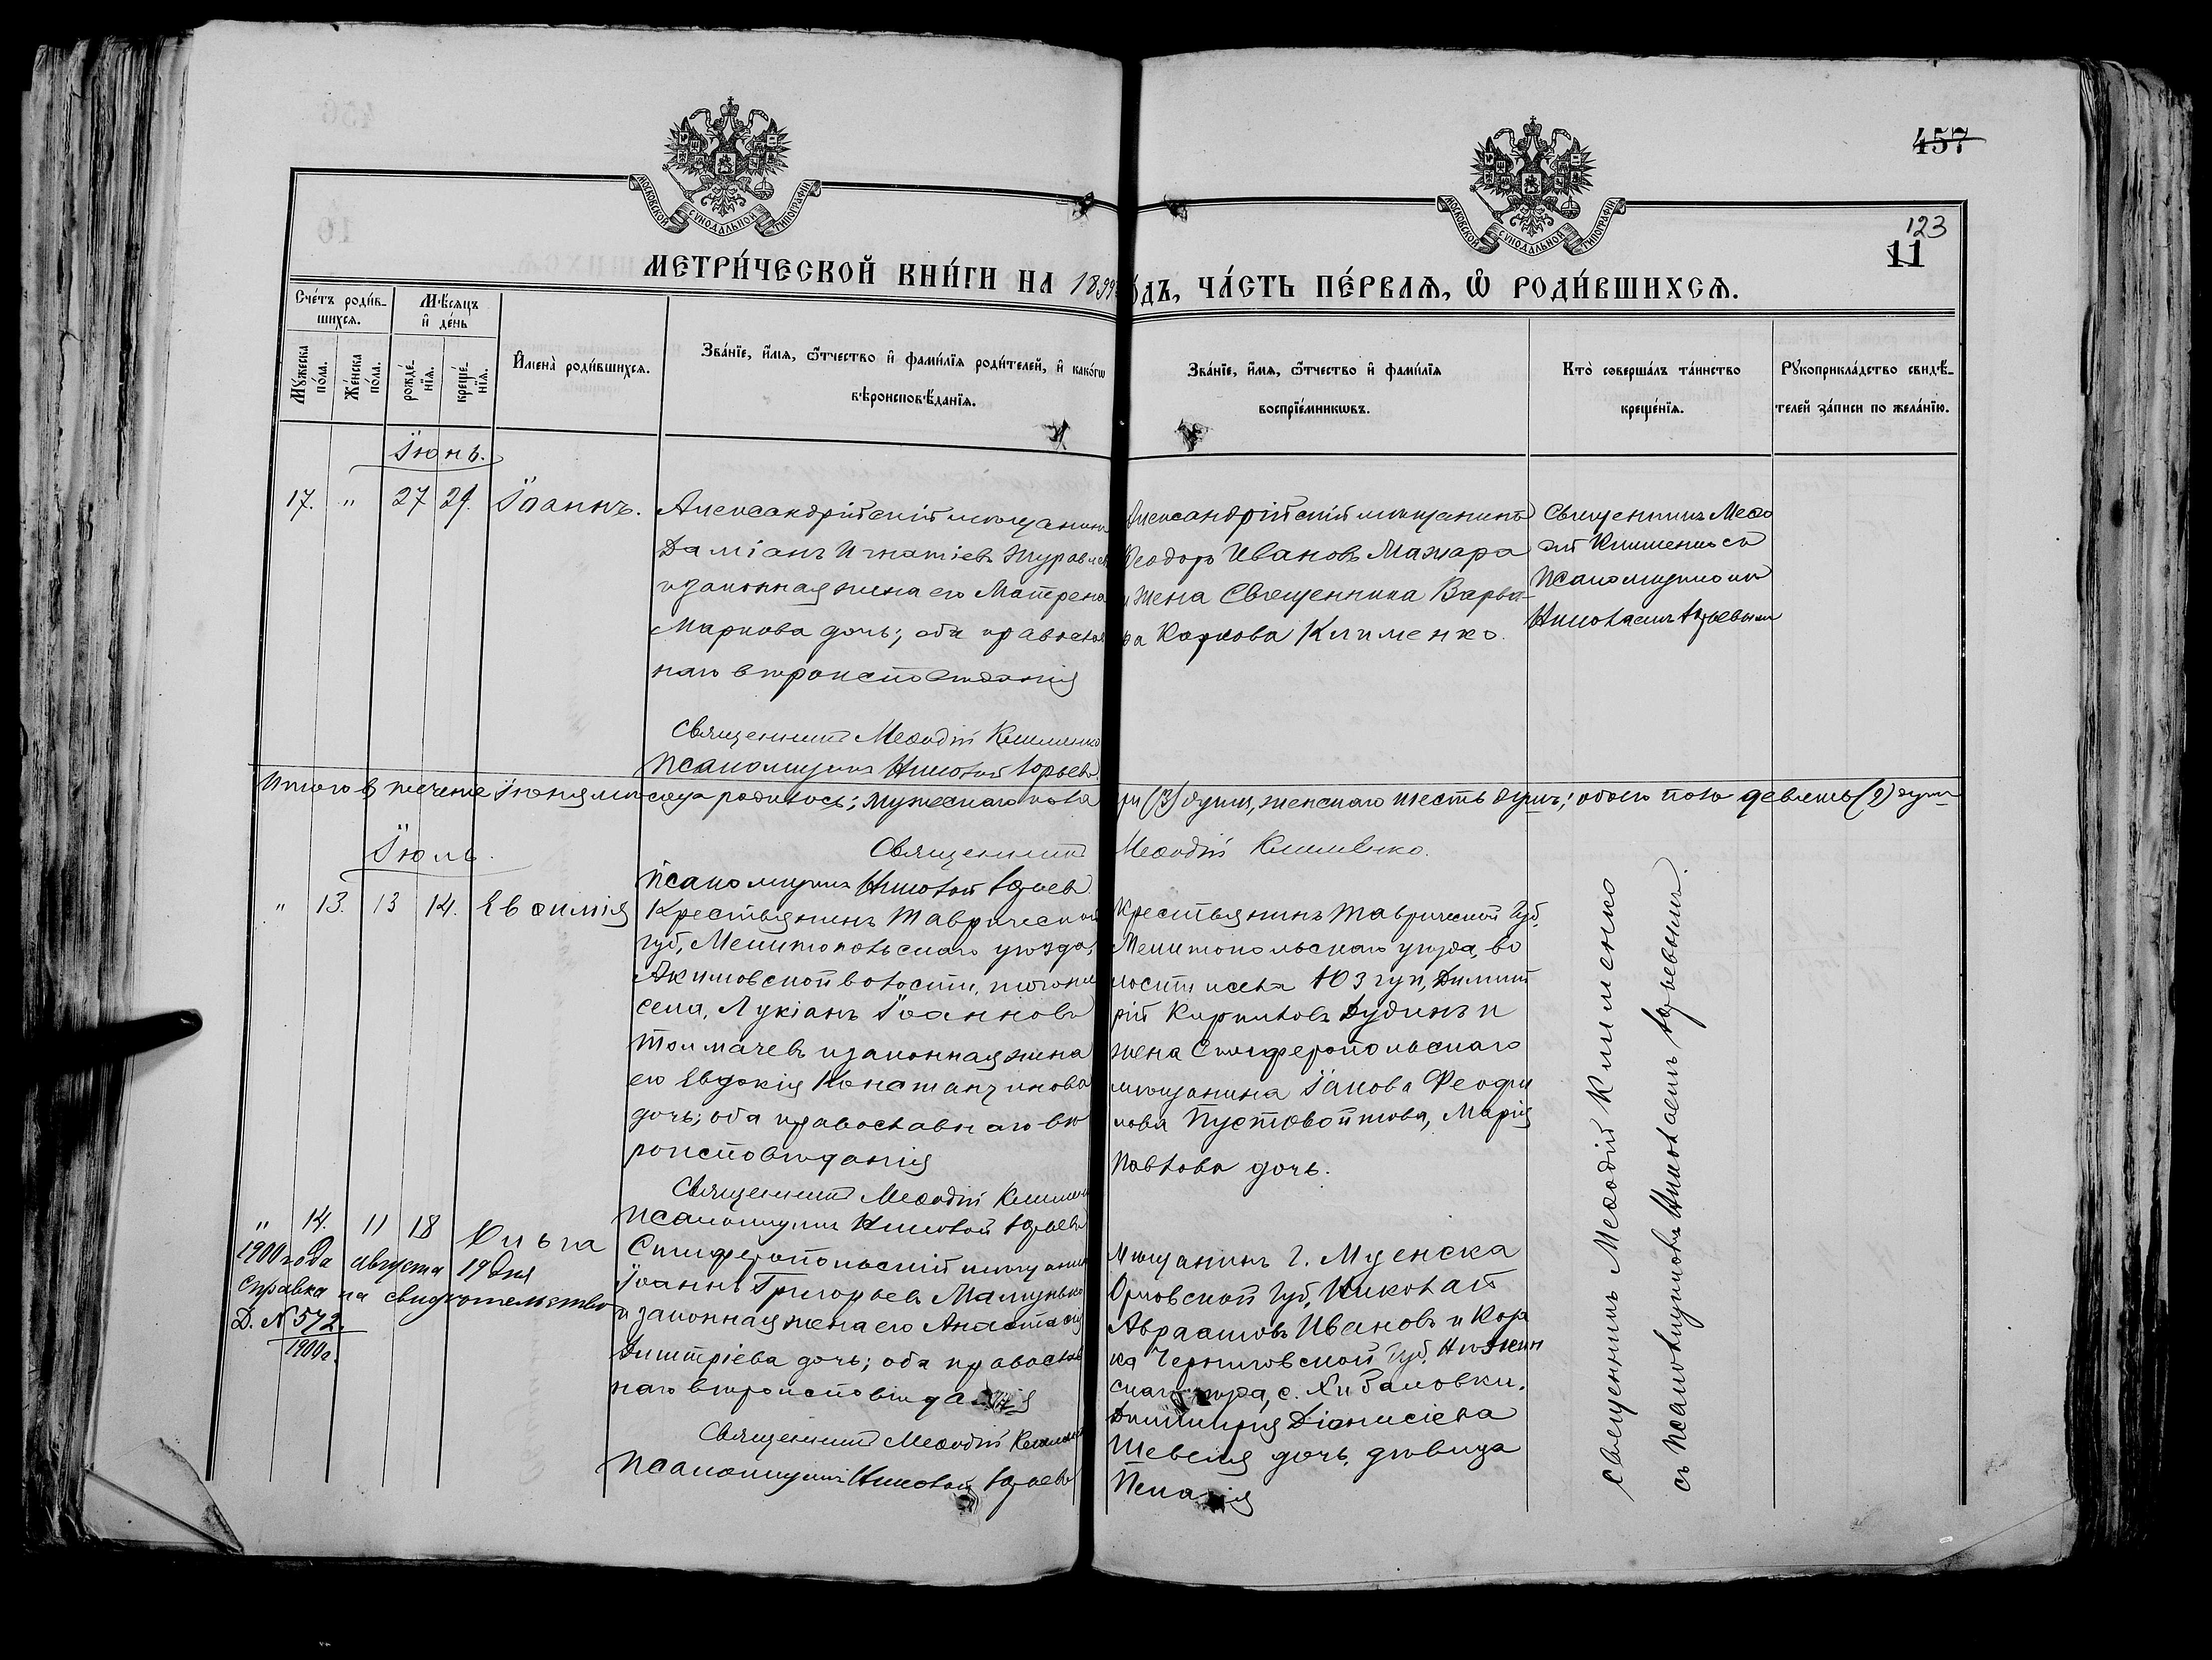 457
123
11
МОСКОВСКОЙ СУНОДАЛЬНОЙ ТИПОГРАФІИ
МОСКОВСКОЙ СУНОДАЛЬНОЙ ТИПОГРАФІИ
МЕТРИ́ЧЕСКОЙ КНИ́ГИ НА 1899
о́дъ, ЧА́СТЬ ПЕ́РВАѦ, Ѡ҆ РОДИ́ВШИХСѦ.
Сче́тъ роди́в-
шихсѧ.
Мꙋ́жеска по́ла.
Же́нска по́ла.
Мѣ́сѧцъ
и҆ де́нь
рожде́-нїѧ.
креще́-нїѧ.
И҆мена̀ роди́вшихсѧ.
Зва́нїе, и҆́мѧ, ѻ҆́тчество и҆ фами́лїѧ роди́телей, и҆ како́гѡ
вѣроисповѣ́данїѧ.
Зва́нїе, и҆́мѧ, ѻ҆́тчество и҆ фами́лїѧ
воспрїе́мникѡвъ.
Кто̀ соверша́лъ та́инство
креще́нїѧ.
Рꙋкоприкла́дство свидѣ́-
телей за́писи по жела́нїю.
Іюнь.
17. " 27 29. Іоаннъ.
Александрійскій мѣщанинъ
Даміанъ Игнатіевъ Журавлев
и законная жена его Матрена
Маркова дочь; оба православ
наго вѣроисповѣданія
Священникъ Меѳодій Клименко
Псаломщикъ Николай Юрьевъ.
Александрійскій мѣщанинъ
Ѳеодоръ Ивановъ Мажара
и жена Священника Варва-
ра Карпова Клименко.
Священникъ Меѳо
дій Клименко съ
Псаломщикомъ
Николаемъ Юрьевымъ
Итого въ теченіе Іюня мѣсяца родилось; мужескаго пола
ри (3) души, женскаго шесть душъ; обоего пола девять (9) душъ
Священникъ Меѳодій Клименко.
Псаломщикъ Николай Юрьевъ.
Іюль.
" 13. 13 14. Евѳимія
Крестьянинъ Таврической
губ, Мелитопольскаго уѣзда,
Акимовской волости, того же
села, Лукіанъ Іоанновъ
Толмачевъ и законная жена
его Евдокія Константинова
дочь; оба православнаго вѣ
роисповѣданія
Священникъ Меѳодій Клименк
Псаломщикъ Николай Юрьевъ
Крестьянинъ Таврической Губ,
Мелитопольскаго уѣзда, во
лости и села Юзгуи, Димит
рій Кирилловъ Дудинъ и
жена Симферопольскаго
мѣщанина Іакова Феофи
лова Пустовойтова, Марія
Павлова дочь.
Священникъ Меѳодій Клименко
съ Псаломщикомъ Николаемъ Юрьевымъ.
" 14. 11 18 Ольга
1900 года августа 19 дня
справка на свидѣтельство
Д. № 572.
1900 г.
Симферопольскій мѣщанин
Іоаннъ Григорьевъ Мамунько
и законная жена его Анастасія
Димитріева дочь; оба православ
наго вѣроисповѣданія
Священникъ Меѳодій Клименк
Псаломщикъ Николай Юрьевъ
Мѣщанинъ г. Мценска
Орловской Губ, Николай
Авраамовъ Ивановъ и
Черниговской Губ, Нѣжин
скаго уѣзда, с.
Димитрія Діонисіева
дочь, дѣвица
Пелагія